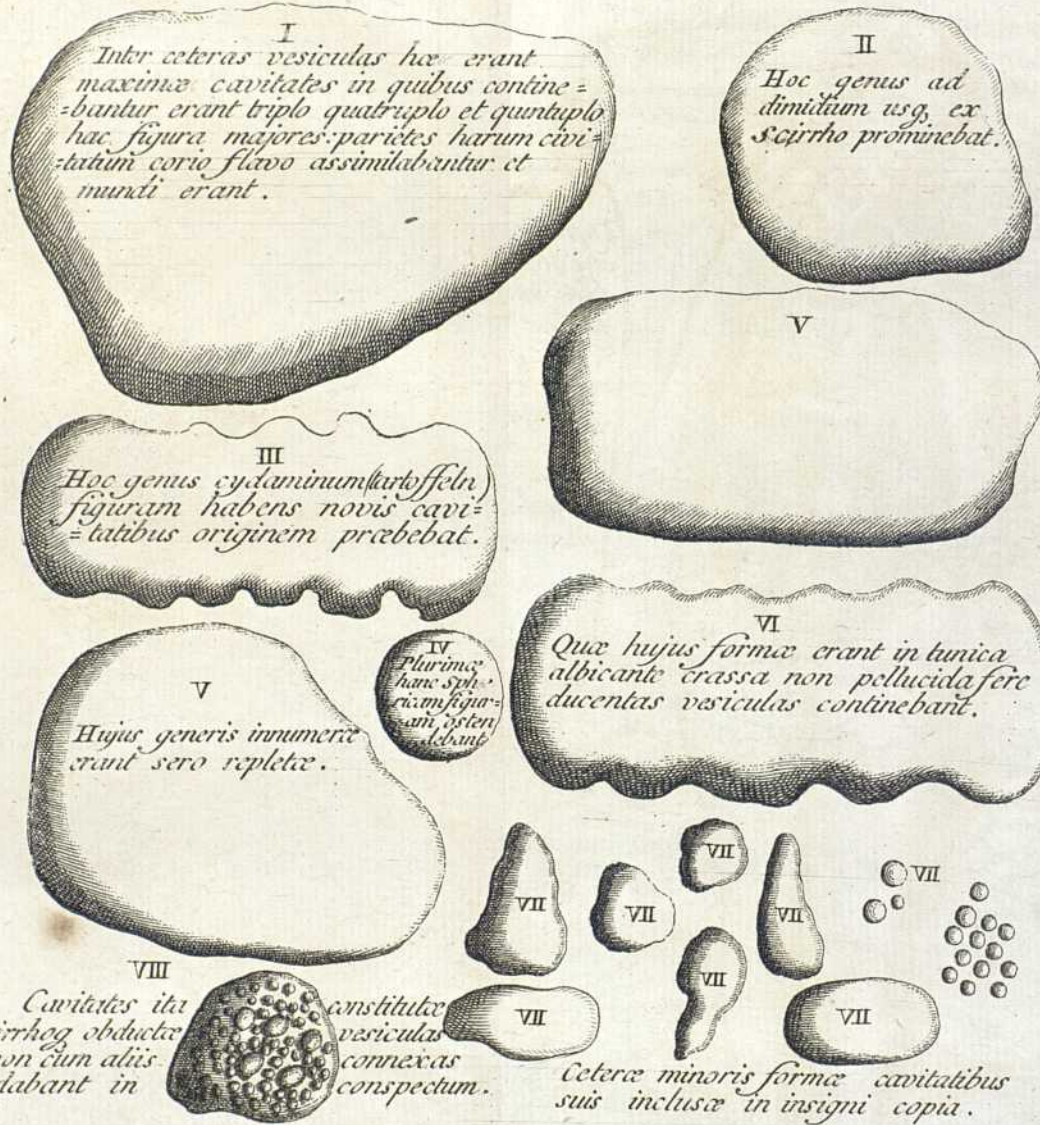 I
Inter ceteras vesiculas hæ erant
maximæ cavitates in quibus contine=
=bantur erant triplo quatruplo et quintuplo
hac figura majores: parietes harum civi=
=tatum corio flavo assimilabantur et
mundi erant.
II
Hoc genus ad
dimidium usq, ex
scirrho prominebat.
V
III
Hoc genus cydaminum (tartoffeln)
figuram habens novis cavi=
=tatibus originem præbebat.
IV
Plurimæ
hanc sphe
ricam figur=
am osten
debant
VI
Quæ hujus formæ erant in tunica
albicante crassa non pellucida fere
ducentas vesiculas continebant.
V
Hujus generis innumeræ
erant sero repletæ.
VII
VII
VII
VII
VII
VII
VII
VII
VIII
Cavitates ita constitutæ
irrhog obductæ vesiculas
non cum aliis connexas
dabant in conspectum.
Ceteræ minoris formæ cavitatibus
suis inclusæ in insigni copia.